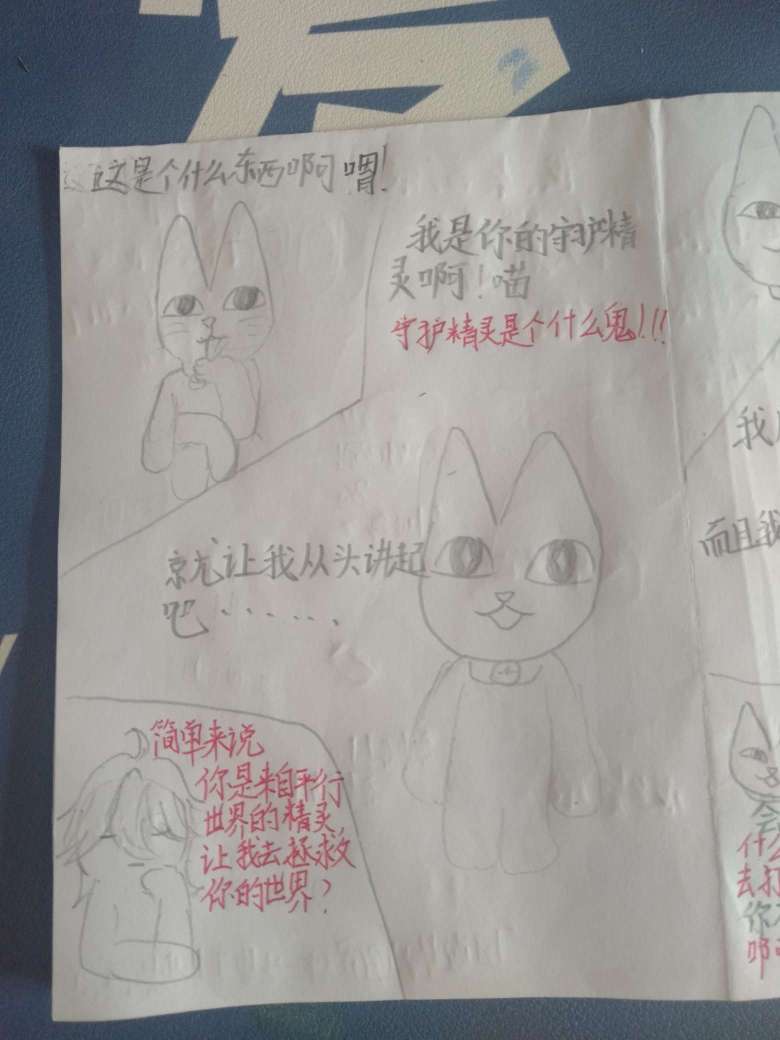 这是个什么东西啊喂!
我是你的守护精
灵啊!喵
守护精灵是个什么鬼!!!
就让我从头讲起
吧······
简单来说
你是来自平行
世界的精灵,
让我去拯救
你的世界?
我
而且我
会
什么
去打
你
啊